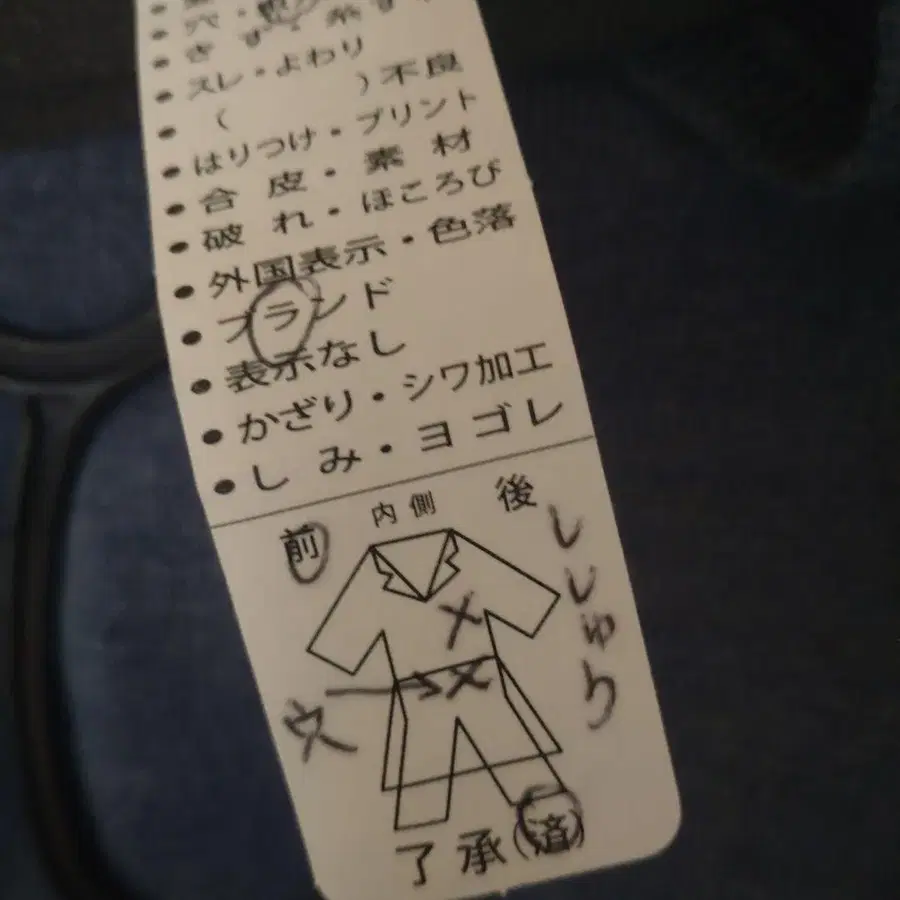 穴・
きず・糸
スレ・よわり
(          )不良
はりつけ・プリント
合皮・素材
破れ・ほころび
外国表示・色落
ブランド
表示なし
かざり・シワ加工
しみ・ヨゴレ
前 内側 後
ししゅう
穴
了承(済)